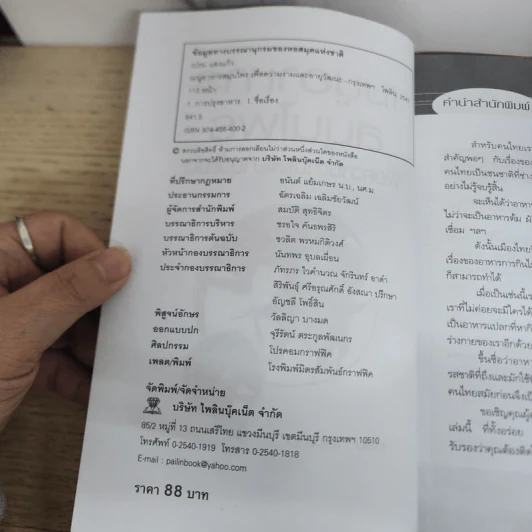 ข้อมูลทางบรรณานุกรมของหอสมุดแห่งชาติ
เมนูอาหารสมุนไพร เพื่อความงามและอายุวัฒนะ.-กรุงเทพฯ : ไพลิน,
112 หน้า
1. การปรุงอาหาร. I. ชื่อเรื่อง.
641.5
ISBN 974-455-400-2
© สงวนลิขสิทธิ์ ห้ามการลอกเลียนไม่ว่าส่วนหนึ่งส่วนใดของหนังสือ
นอกจากจะได้รับอนุญาตจาก บริษัท ไพลินบุ๊คเน็ต จำกัด
ที่ปรึกษากฎหมาย อนันต์ แย้มเกษร น.บ., นศ.ม.
ประธานกรรมการ ฉัตรเฉลิม เฉลิมชัยวัฒน์
ผู้จัดการสำนักพิมพ์ สมบัติ สุทธิจิตร
บรรณาธิการบริหาร ขรอใจ คันธพรสิริ
บรรณาธิการต้นฉบับ ชวลิต พรหมกิติวงค์
หัวหน้ากองบรรณาธิการ นันทพร อุบลเผื่อน
ประจำกองบรรณาธิการ ภัทรภร ไวคำนวณ จักรินทร์ อาดำ
สิริพันธุ์ ศรีอรุณศักดิ์ อังสณา ปรึกษา
อัญชลี โพธิ์สิน
พิสูจน์อักษร วัลลิญา บางมด
ออกแบบปก จุรีรัตน์ ตระกูลพัฒเนกร
ศิลปกรรม โปรคอมกราฟฟิค
เพลต/พิมพ์ โรงพิมพ์มิตรสัมพันธ์กราฟฟิค
จัดพิมพ์/จัดจำหน่าย
บริษัท ไพลินบุ๊คเน็ต จำกัด
85/2 หมู่ที่ 13 ถนนเสรีไทย แขวงมีนบุรี เขตมีนบุรี กรุงเทพฯ 10510
โทรศัพท์ 0-2540-1919 โทรสาร 0-2540-1818
E-mail : pailinbook@yahoo.com
ราคา 88 บาท
คำนำสำนักพิมพ์
สำหรับคนไทยเรา
สำคัญพอๆ กับเรื่องของ
คนไทยเป็นชนชาติที่ช่าง
อย่างไม่รู้จบรู้สิ้น
จะเห็นได้ว่าอาหาร
ไม่ว่าจะเป็นอาหารต้ม ผัด
เชื่อม ฯลฯ
ดังนั้นเมืองไทย
เรื่องของอาหารการกินไ
ก็สามารถทำได้
เมื่อเป็นเช่นนี้
เราที่ไม่ค่อยจะมีใครได้
เป็นอาหารแปลกที่หากิ
ร่างกายของเราอีกด้วย
ขึ้นชื่อว่าอาหาร
รสชาติที่ถึงและมักใช้
คนไทยสมัยก่อนจึงเป็
ขอเชิญคุณผู้
เล่มนี้ ที่ทั้งอร่อย
รับรองว่าคุณต้องติด